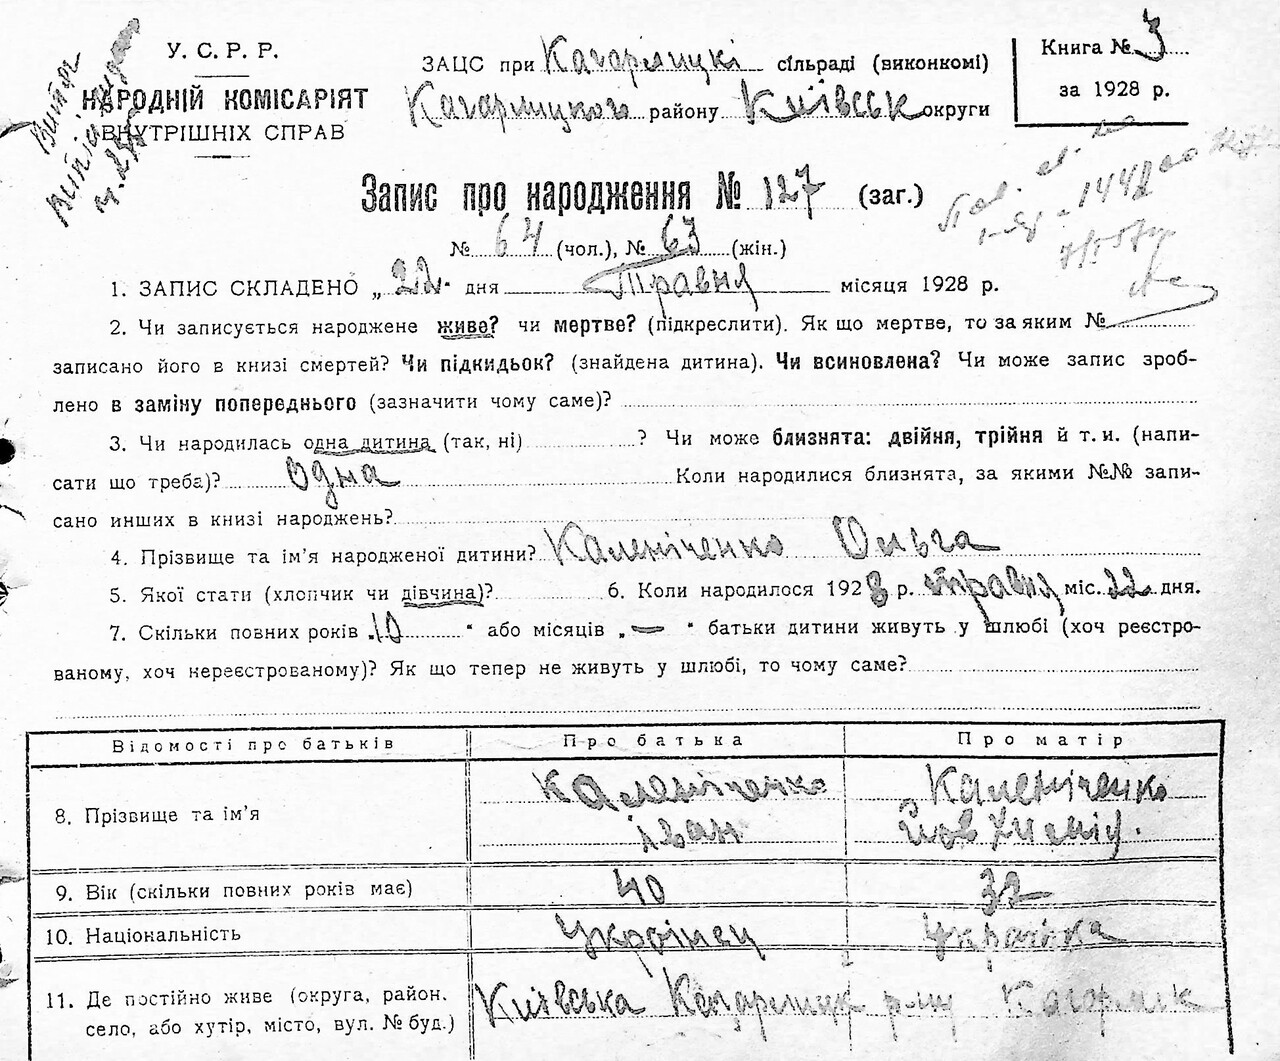 У. С. Р. Р.
НАРОДНІЙ КОМІСАРІЯТ
ВНУТРІШНІХ СПРАВ
Витяг
ЗАЦС при Кагарлицкі сільраді (виконкомі)
Кагарлицкого району Київськ округи
Книга № 3
за 1928 р.
Запис про народження № 127 (заг.)
№ 64 (чол.), № 63 (жін.)
1. ЗАПИС СКЛАДЕНО „22" дня Травня місяця 1928 р.
2. Чи записується народжене живе? чи мертве? (підкреслити). Як що мертве, то за яким №
записано його в книзі смертей? Чи підкидьок? (знайдена дитина). Чи всиновлена? Чи може запис зроб-
лено в заміну попереднього (зазначити чому саме)?
3. Чи народилась одна дитина (так, ні) ? Чи може близнята: двійня, трійня й т. и. (напи-
сати що треба)? Одна Коли народилися близнята, за якими №№ запи-
сано инших в книзі народжень?
4. Прізвище та ім'я народженої дитини? Каленіченко Ольга
5. Якої стати (хлопчик чи дівчина)? 6. Коли народилося 1928 р. травня міс. 22 дня.
7. Скільки повних років „10" або місяців „—" батьки дитини живуть у шлюбі (хоч реєстро-
ваному, хоч нереєстрованому)? Як що тепер не живуть у шлюбі, то чому саме?
Відомості про батьків Про батька Про матір
8. Прізвище та ім'я Каленіченко Іван Каленіченко
9. Вік (скільки повних років має) 40 32
10. Національність Українец Українка
11. Де постійно живе (округа, район,
село, або хутір, місто, вул. № буд.) Київська Кагарлицк р-ну Кагарлик